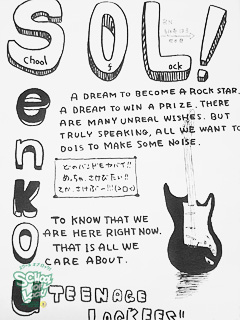 SOL!
chool
of
ock
enkou
A DREAM TO BECOME A ROCK STAR.
A DREAM TO WIN A PRIZE. THERE
ARE MANY UNREAL WISHES. BUT
TRULY SPEAKING, ALL WE WANT TO
DO IS TO MAKE SOME NOISE.
どのバンドもヤバイ!!
めっちゃ、さけびたい!!
TO KNOW THAT WE
ARE HERE RIGHT NOW.
THAT IS ALL WE
CARE ABOUT.
TEENAGE
LOCKEES!!